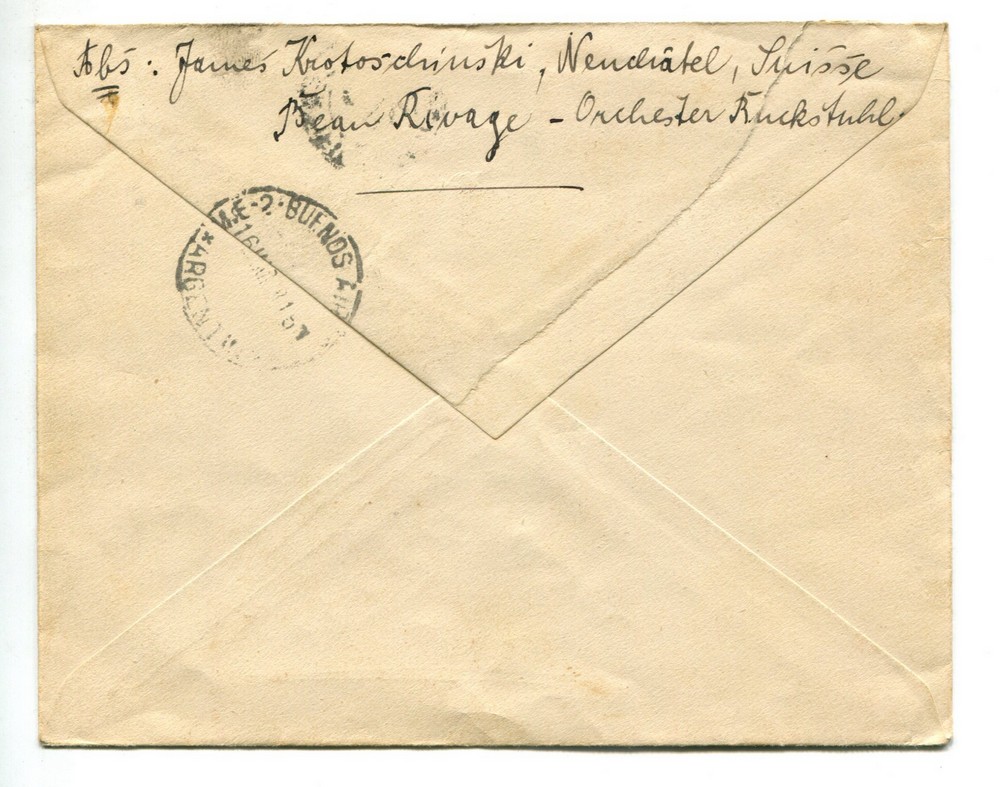 Abs: James Krotoschinski, Neuchâtel, Suisse
Beau Rivage - Orchester Ruckstuhl.
BUENOS
ARGENTINA